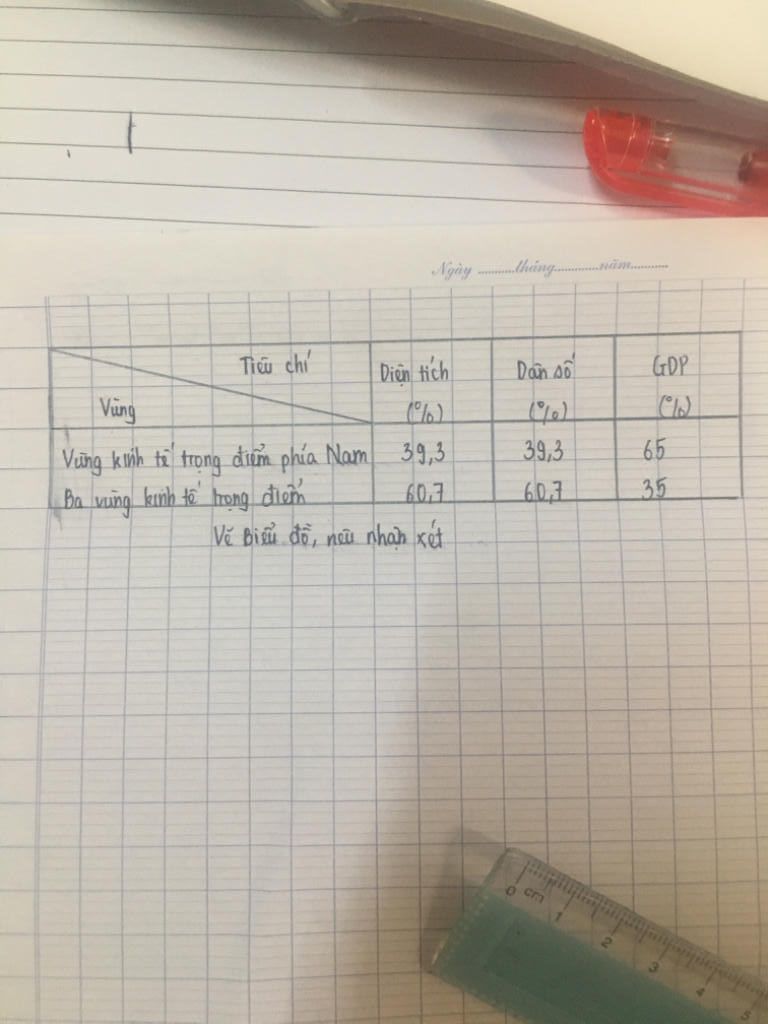 Ngày ..........tháng............năm..........
Tiêu chí
Vùng
Diện tích
(%)
Dân số
(%)
GDP
(%)
Vùng kinh tế trọng điểm phía Nam 39,3 39,3 65
Ba vùng kinh tế trọng điểm 60,7 60,7 35
Vẽ Biểu đồ, nêu nhận xét
0 cm 1 2 3 4 5